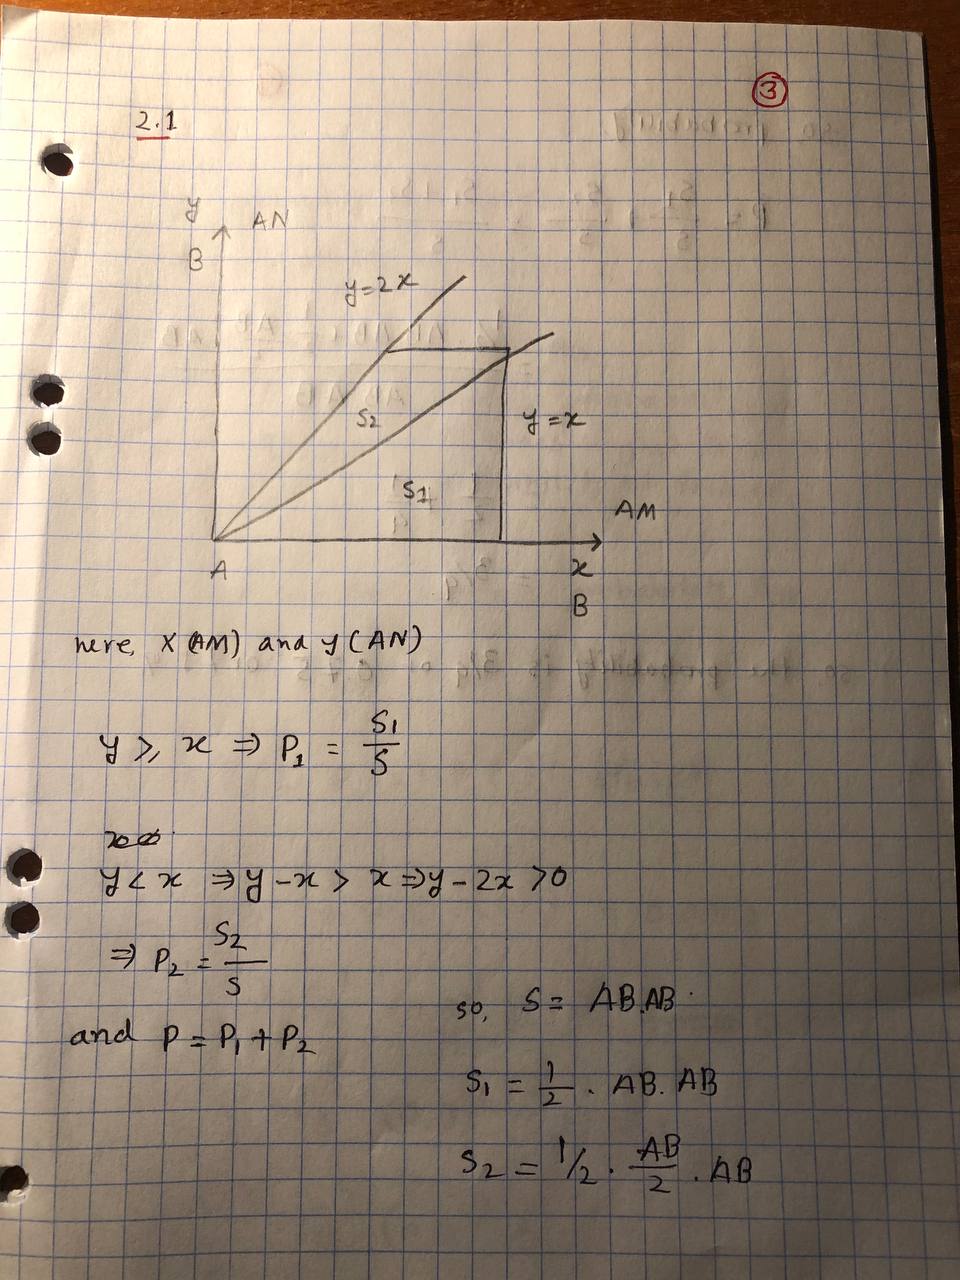 3
2.1
y
AN
B
y=2x
S2
y=x
S1
AM
A
x
B
here, X(AM) and y(AN)
y ⩾ x ⇒ P₁ = S₁/S
y < x ⇒ y - x > x ⇒ y - 2x > 0
⇒ P₂ = S₂/S
so, S = AB.AB
and P = P₁ + P₂
S₁ = 1/2 . AB. AB
S₂ = 1/2 . AB/2 . AB